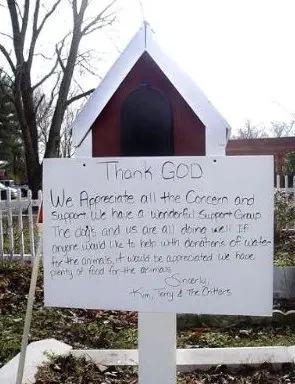 Thank GOD
We Appreciate all the Concern and
support We have a wonderful Support Group
The dogs and us are all doing well If
anyone would like to help with donations of water
for the animals, it would be appreciated we have
plenty of food for the animals
Sincerly,
Kim, Terry & The Critters